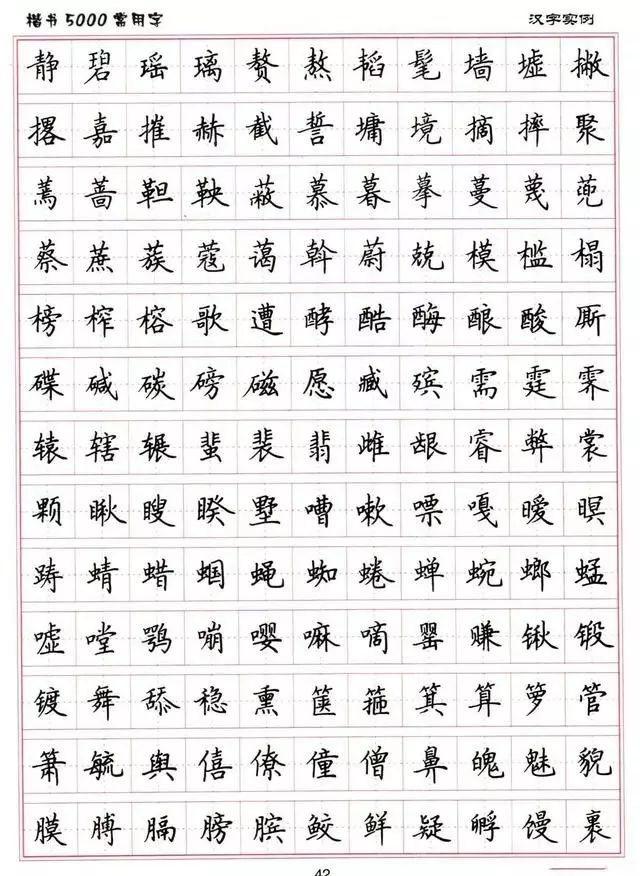 楷书5000常用字 汉字实例
静碧瑶璃赘熬韬髦墙墟撇
撂嘉摧赫截誓墉境摘摔聚
蔫蔷靼鞅蔽慕暮摹蔓蔑蔸
蔡蔗蔟蔻蔼斡蔚兢模槛榻
榜榨榕歌遭酵酷酶酿酸厮
碟碱碳磅磁愿臧殡需霆霁
辕辖辗蜚裴翡雌龈睿弊裳
颗瞅瞍睽墅嘈嗽嘌嘎暧暝
踌蜻蜡蝈蝇蜘蜷蝉蜿螂蜢
嘘嘡鹗嘣嘤嘛嘀罂赚锹锻
镀舞舔稳熏箧箍箕算箩管
箫毓舆僖僚僮僧鼻魄魅貌
膜膊膈膀膑鲛鲜疑孵馒裹
42